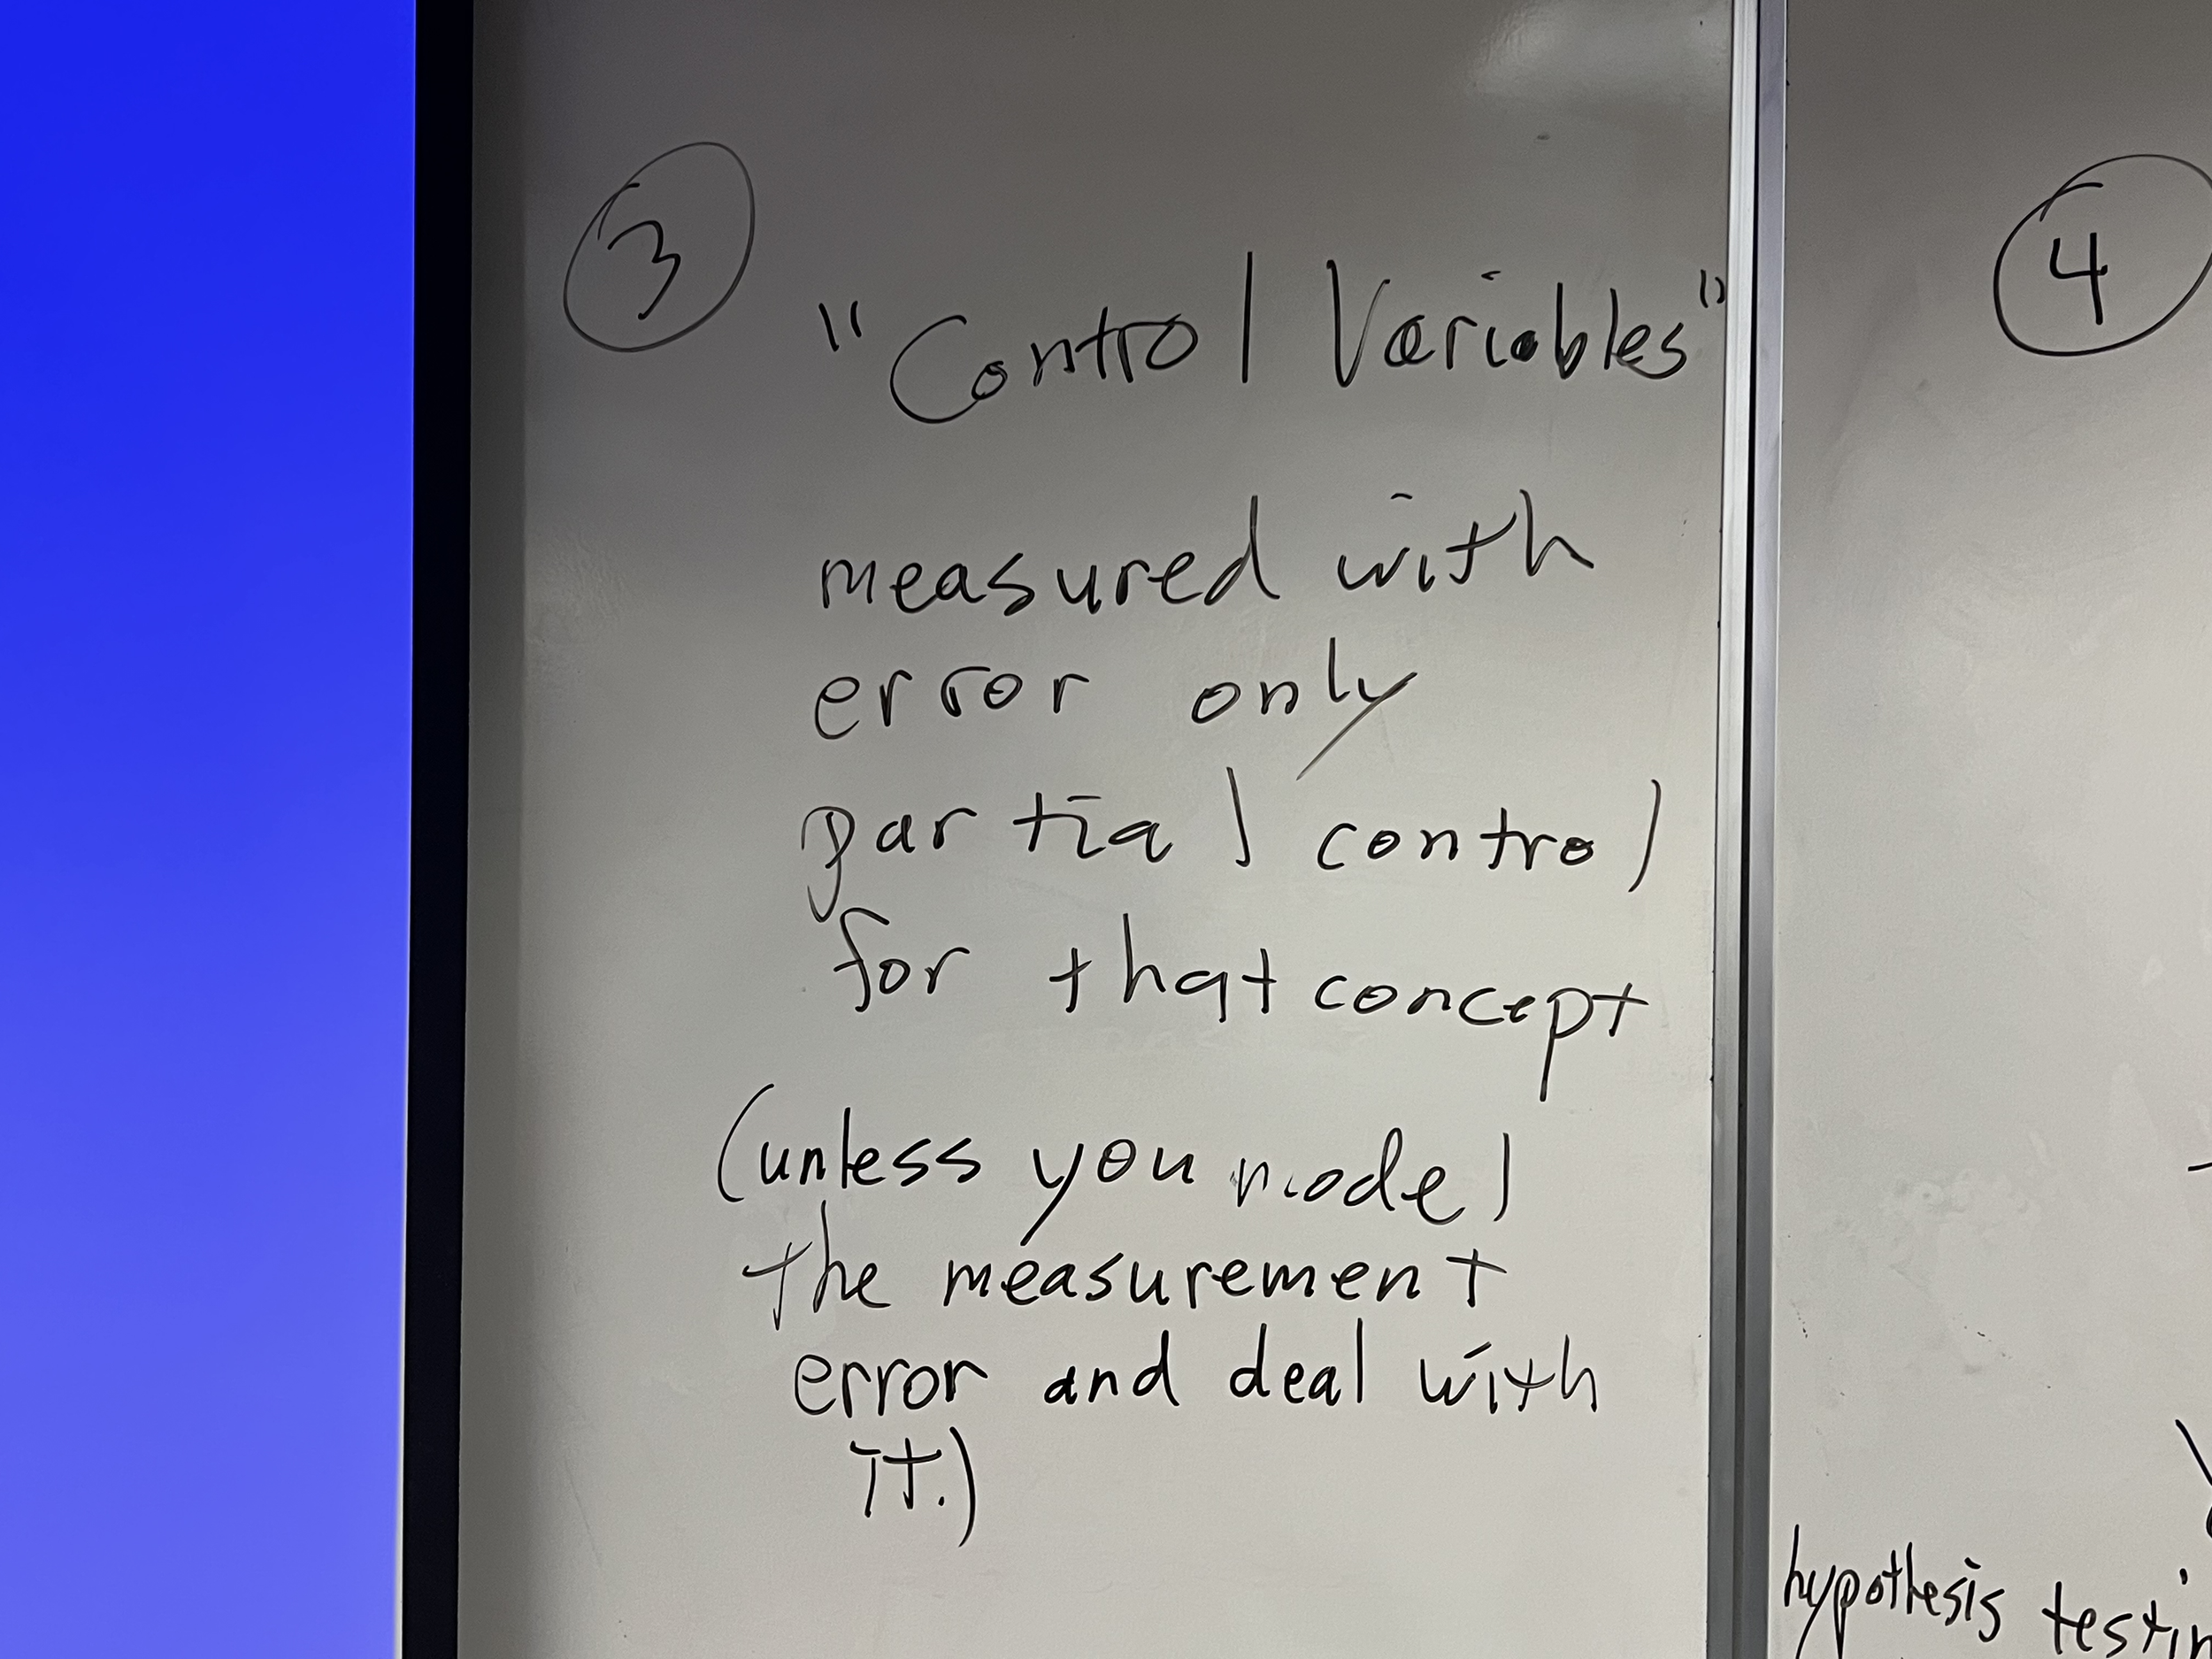 3
"Control Variables"
measured with
error only
partial control
for that concept
(unless you model
the measurement
error and deal with
it.)
4
hypothesis testin